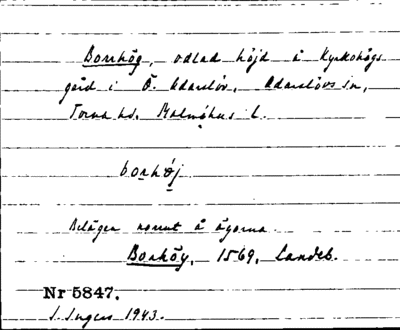 Borrhög, odlad höjd å Kyrkohögs
gård i Ö. Odarslöv, Odarslövs sn,
Torna hd, Malmöhus l.
bo̲rhø̣j
Belägen norrut å ägorna.
Borhöy, 1569. Landeb.
Nr 5847.
I. Ingers 1943.